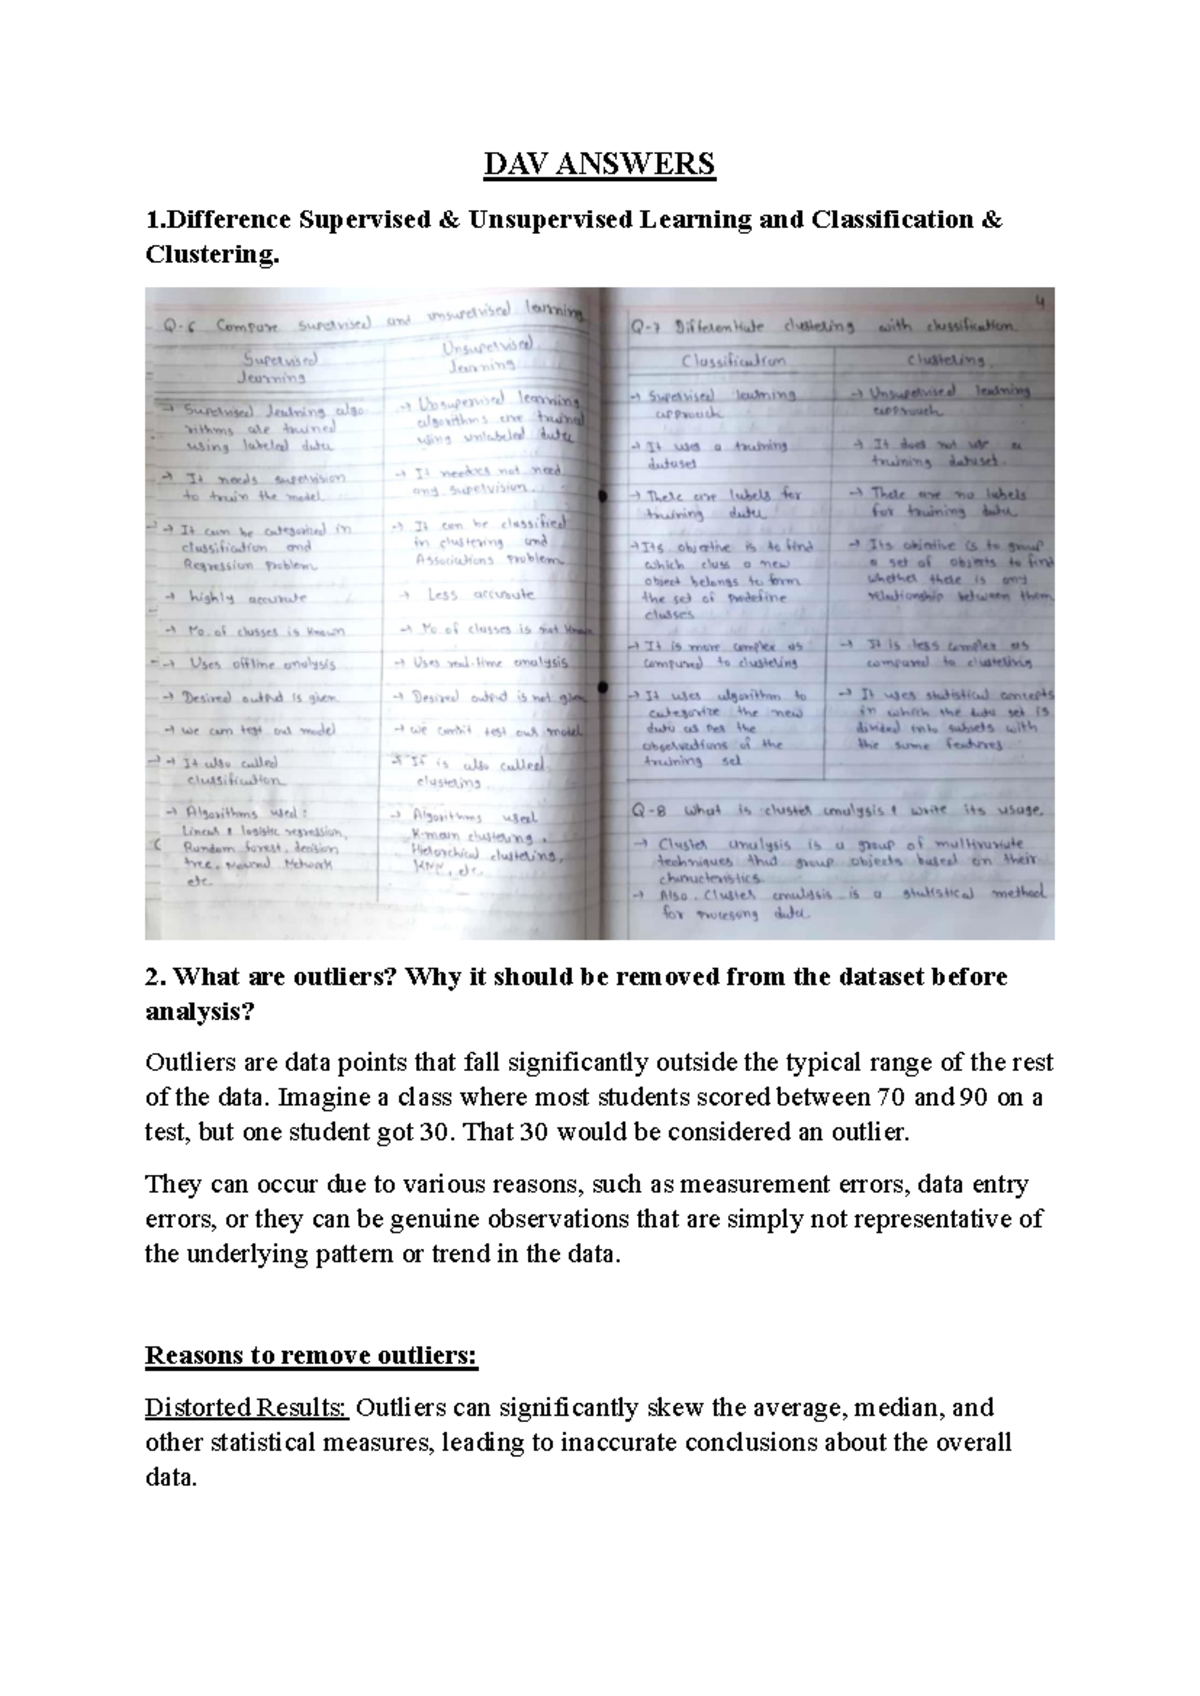 DAV ANSWERS
1.Difference Supervised & Unsupervised Learning and Classification &
Clustering.
Q-6 Compare supervised and unsupervised learning
Supervised
learning
Unsupervised
learning
→ Supervised learning algo
rithms are trained
using labeled data
→ Unsupervised learning
algorithms are trained
using unlabeled data
→ It needs supervision
to train the model
→ It needes not need
any supervision.
→ It can be categorised in
classification and
Regression problem
→ It can be classified
in clustering and
Associations problem
→ highly accurate
→ Less accurate
→ No. of classes is known
→ No of classes is not known
→ Uses offline analysis
→ Uses real-time analysis
→ Desired output is given
→ Desired output is not given
→ we can test our model
→ we can't test our model
→ It also called
classification
→ It is also called
clustering.
→ Algorithms used:
Linear & logistic regression,
Random forest, decision
tree, Neural Network
etc.
→ Algorithms used
K-mean clustering,
Hierarchical clustering,
KNN, etc
4
Q-7 Differentiate clustering with classification
Classification
Clustering.
→ Supervised learning
approach
→ Unsupervised learning
approach
→ It uses a training
dataset
→ It does not use a
training dataset.
→ There are labels for
training data
→ There are no labels
for training data
→ Its objective is to find
which class a new
object belongs to form
the set of predefine
classes
→ Its objective is to group
a set of objects to find
whether there is any
relationship between them
→ It is more complex as
compared to clustering
→ It is less complex as
compared to clustering
→ It uses algorithm to
categorize the new
data as per the
observations of the
training set
→ It uses statistical concepts
in which the data set is
divided into subsets with
the same features
Q-8 What is cluster analysis & write its usage.
→ Cluster analysis is a group of multivariate
techniques that group objects based on their
characteristics.
→ Also, Cluster analysis is a statistical method
for processing data.
2. What are outliers? Why it should be removed from the dataset before
analysis?
Outliers are data points that fall significantly outside the typical range of the rest
of the data. Imagine a class where most students scored between 70 and 90 on a
test, but one student got 30. That 30 would be considered an outlier.
They can occur due to various reasons, such as measurement errors, data entry
errors, or they can be genuine observations that are simply not representative of
the underlying pattern or trend in the data.
Reasons to remove outliers:
Distorted Results: Outliers can significantly skew the average, median, and
other statistical measures, leading to inaccurate conclusions about the overall
data.